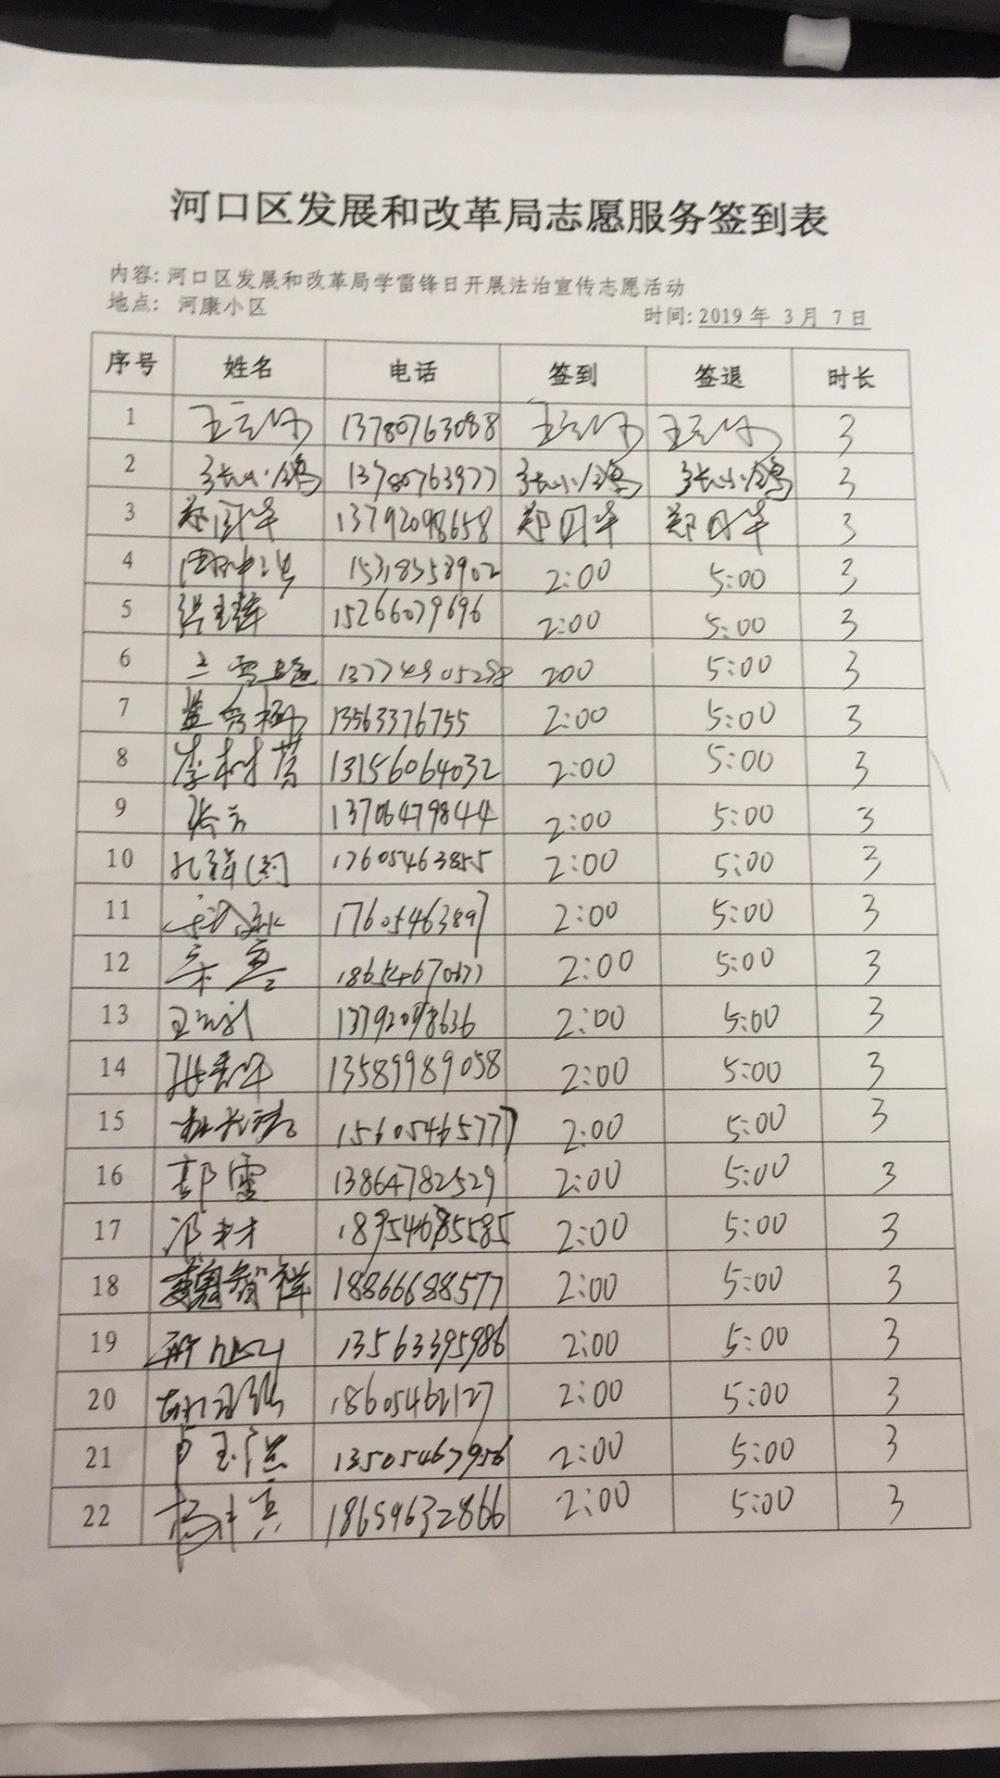 河口区发展和改革局志愿服务签到表
内容: 河口区发展和改革局学雷锋日开展法治宣传志愿活动
地点: 河康小区 时间: 2019 年 3 月 7 日
序号 姓名 电话 签到 签退 时长
1 13780763088 3
2 张小鸽 13780763977 张小鸽 张小鸽 3
3 郑国华 13792098658 郑国华 郑国华 3
4 15318353902 2:00 5:00 3
5 15266079696 2:00 5:00 3
6 200 5:00 3
7 13563376755 2:00 5:00 3
8 李树 13156064032 2:00 5:00 3
9 13706479844 2:00 5:00 3
10 17605463855 2:00 5:00 3
11 17605463897 2:00 5:00 3
12 2:00 5:00 3
13 13792098636 2:00 5:00 3
14 13589989058 2:00 5:00 3
15 15605465777 2:00 5:00 3
16 郭雪 13864782529 2:00 5:00 3
17 18954685585 2:00 5:00 3
18 魏智祥 18866688577 2:00 5:00 3
19 13563395986 2:00 5:00 3
20 18605462127 2:00 5:00 3
21 卢玉洪 13505467956 2:00 5:00 3
22 18659632866 2:00 5:00 3